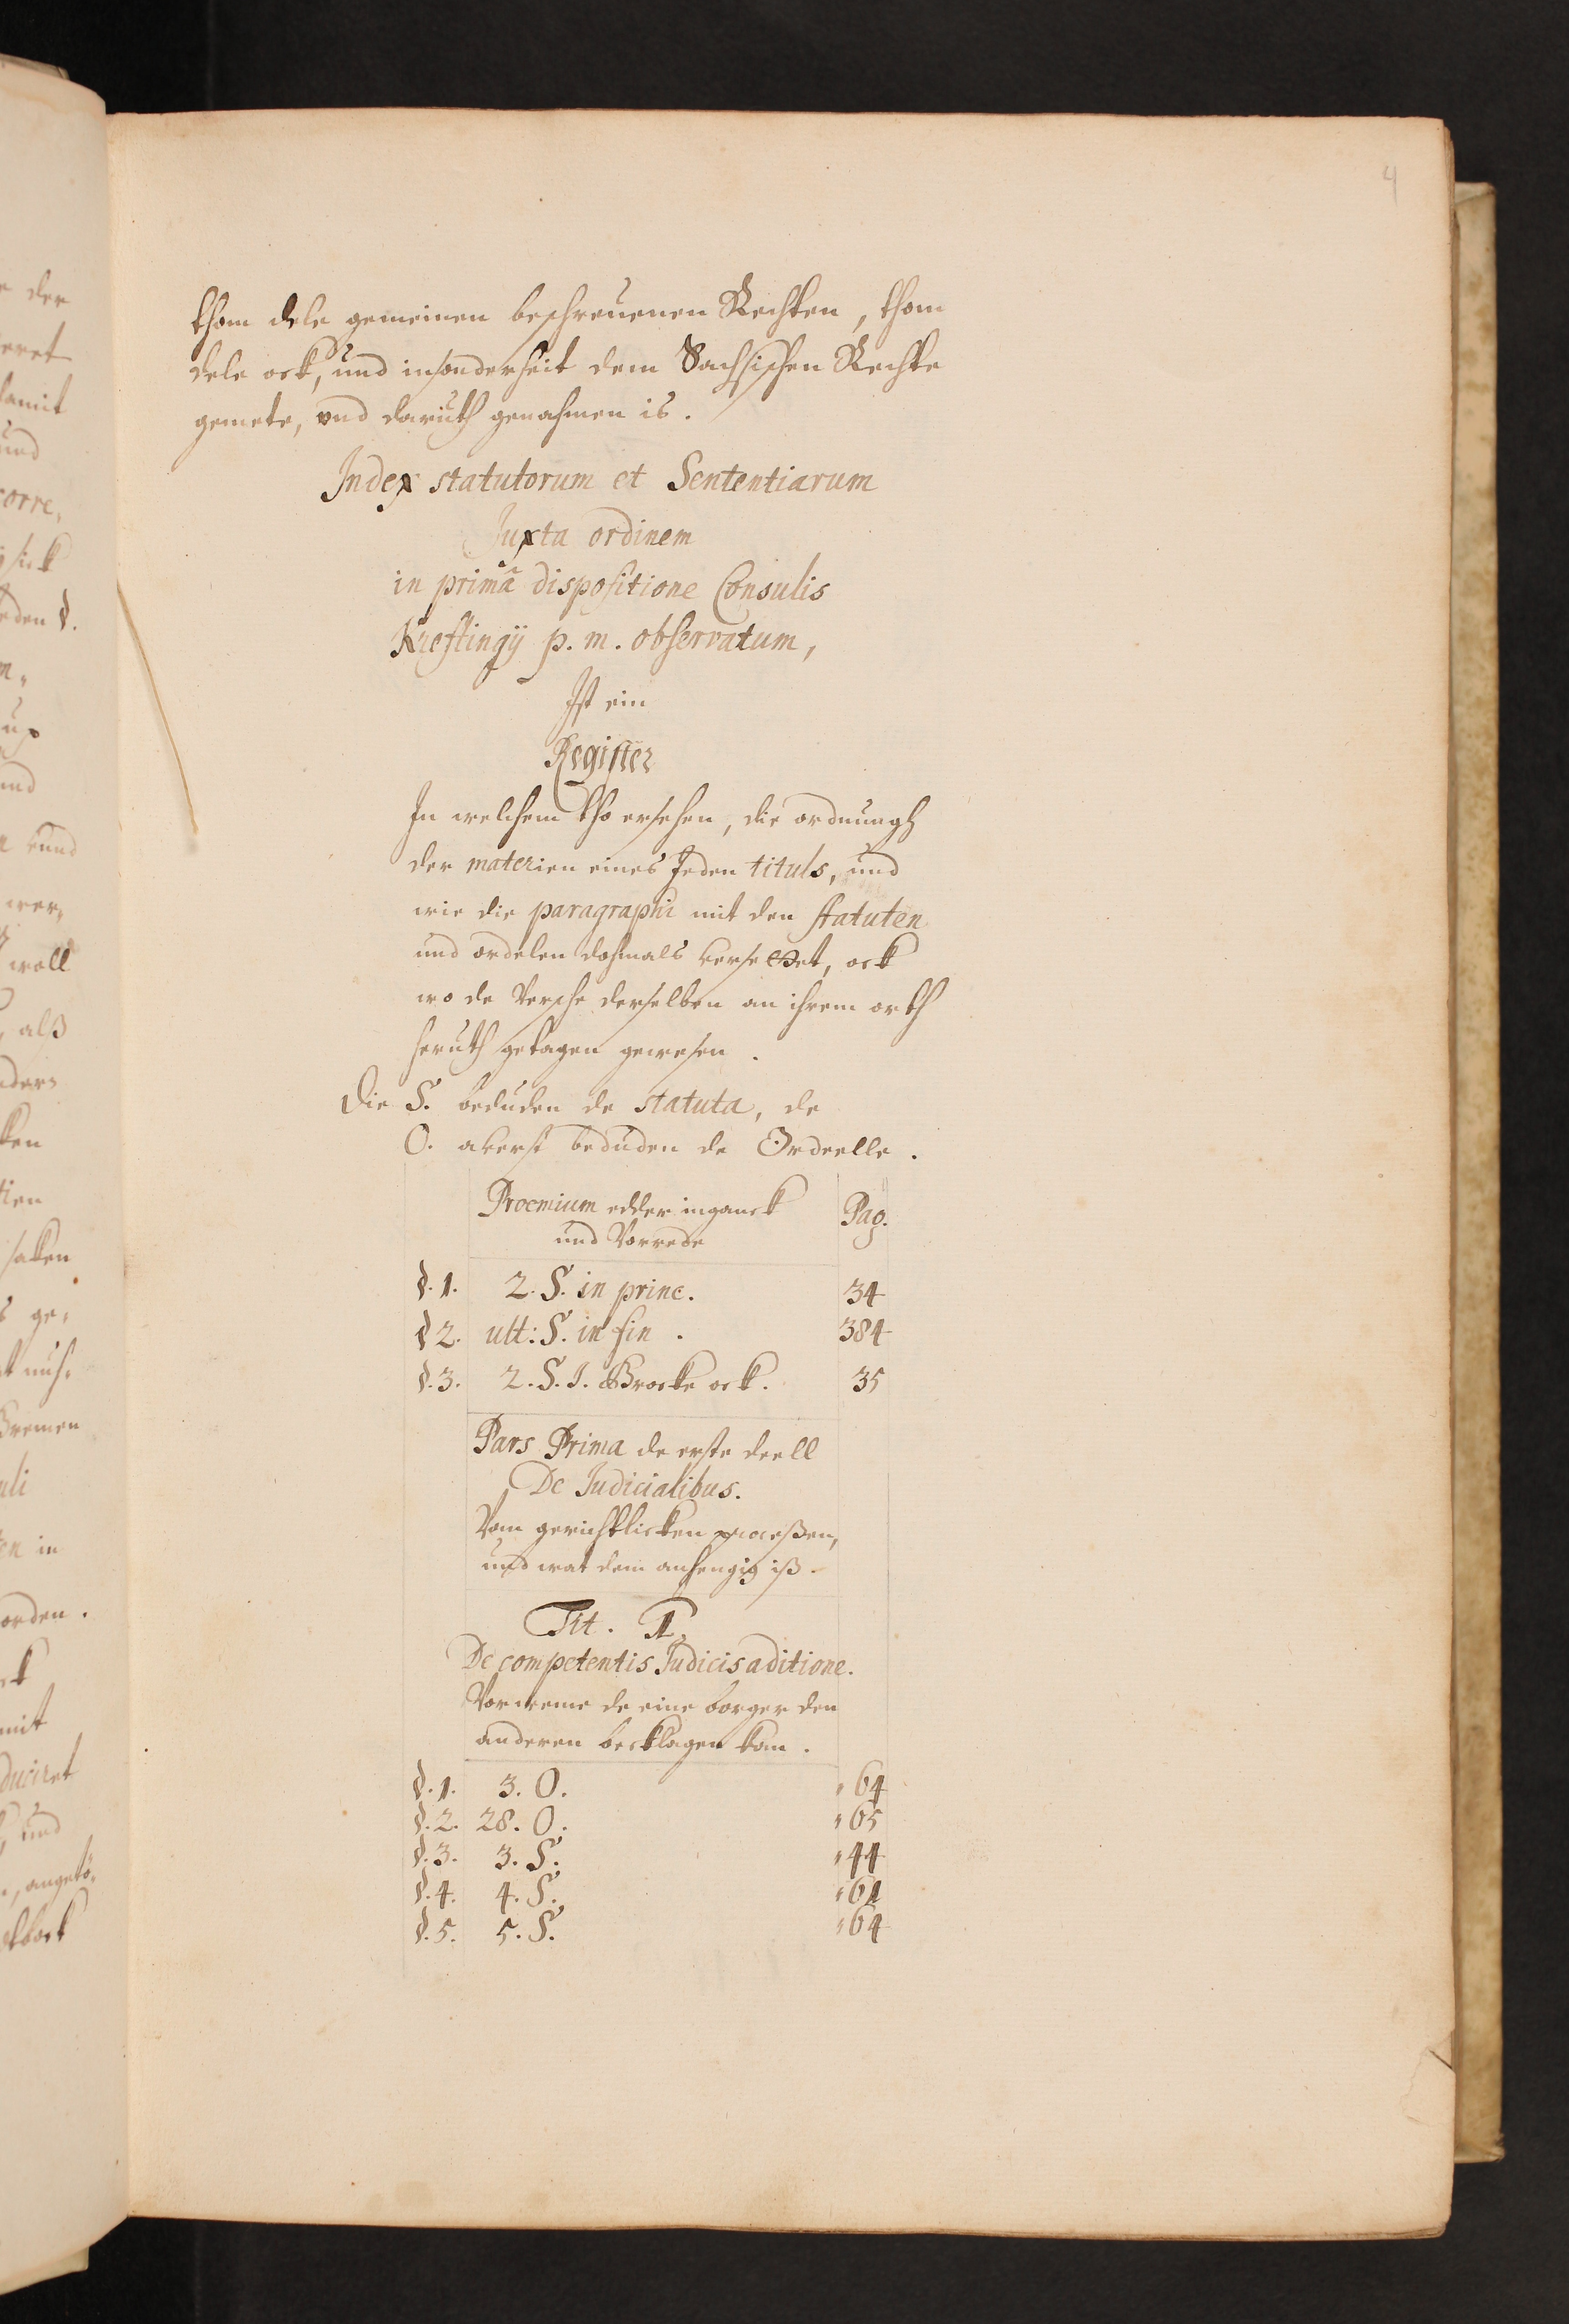 4
thom dele gemeinen beschreuenen Rechten, thom
dele ock, und insonderheit dem Sachsischen Rechte
gemete, und daruth genahmen is.
Index statutorum et Sententiarum
Juxta ordinem
in primâ dispositione Consulis
Kreftingij p. m. observatum,
Ist ein
Register
In welchem tho ersehen, die ordnungh
der materien eines Jeden tituls, und
wie die paragraphi mit den statuten
und ordelen dohmals versettet, ock
wo de Versche derselben an ihrem orth
heruth getagen gewesen.
Die S. beduden de statuta, de
O. averst beduden de Ordeelle.
Proemium edder inganck
und Vorrede
Pag.
§.1. 2. S. in princ. 34
§2. ult: S. in fin. 384
§.3. 2. S. J. Brocke ock. 35
Pars Prima de erste deell
De Judicialibus.
Vom gerichtlicken processen,
und wat dem anhengig iß.
Tit. 1.
De competentis Judicis aditione.
Vor weme de eine borger den
anderen becklagen kan.
§.1. 3. O. 64
§.2. 28. O. 65
§.3. 3. S. 44
§.4. 4. S. 61
§.5. 5. S. 64